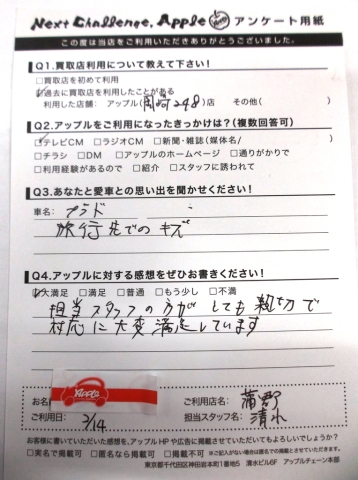 Next Challenge, Apple アンケート用紙
この度は当店をご利用いただきありがとうございました。
Q1.買取店利用について教えて下さい!
□買取店を初めて利用
☑過去に買取店を利用したことがある
利用した店舗: アップル(岡崎248)店 その他( )
Q2.アップルをご利用になったきっかけは?(複数回答可)
☑テレビCM □ラジオCM □新聞・雑誌(媒体名/ )
□チラシ □DM □アップルのホームページ □通りがかりで
□利用経験があるので □紹介 □スタッフに誘われて
Q3.あなたと愛車との思い出を聞かせください!
車名: プラド
旅行先でのキズ
Q4.アップルに対する感想をぜひお書きください!
☑大満足 □満足 □普通 □もう少し □不満
担当スタッフの方がとても親切で
対応に大変満足しています
お名
Apple
ご利用店名: 蒲郡
ご利用日: 2/14
担当スタッフ名: 清水
お客様に書いていただいた感想を、アップルHPや広告に掲載させていただいてもよろしいでしょうか?
□実名で掲載可 □匿名なら掲載可 □掲載不可 ※ご記入がない場合は匿名での掲載とさせていただきます。
東京都千代田区神田岩本町1番地5 清水ビル6F アップルチェーン本部